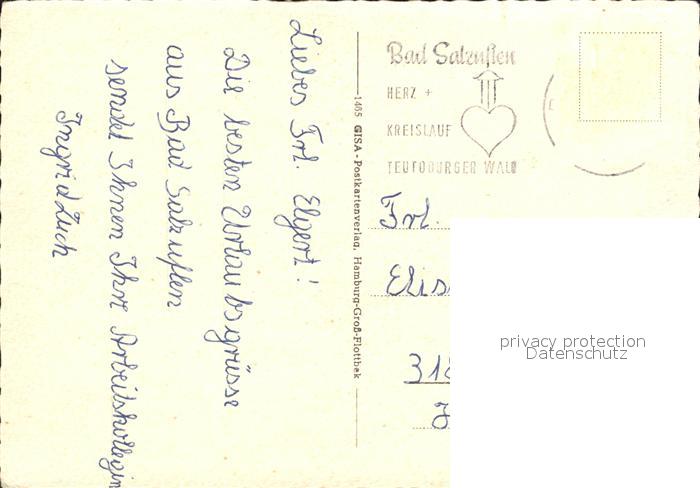 Liebes Frl. Elgert!
Die besten Urlaubsgrüsse
aus Bad Salzuflen
sendet Ihnen Ihre Arbeitskollegin
Ingrid Zuch
1465 GISA-Postkartenverlag, Hamburg-Groß-Flottbek
Bad Salzuflen
HERZ +
KREISLAUF
TEUTOBURGER WALD
Frl.
Elis
318
privacy protection
Datenschutz